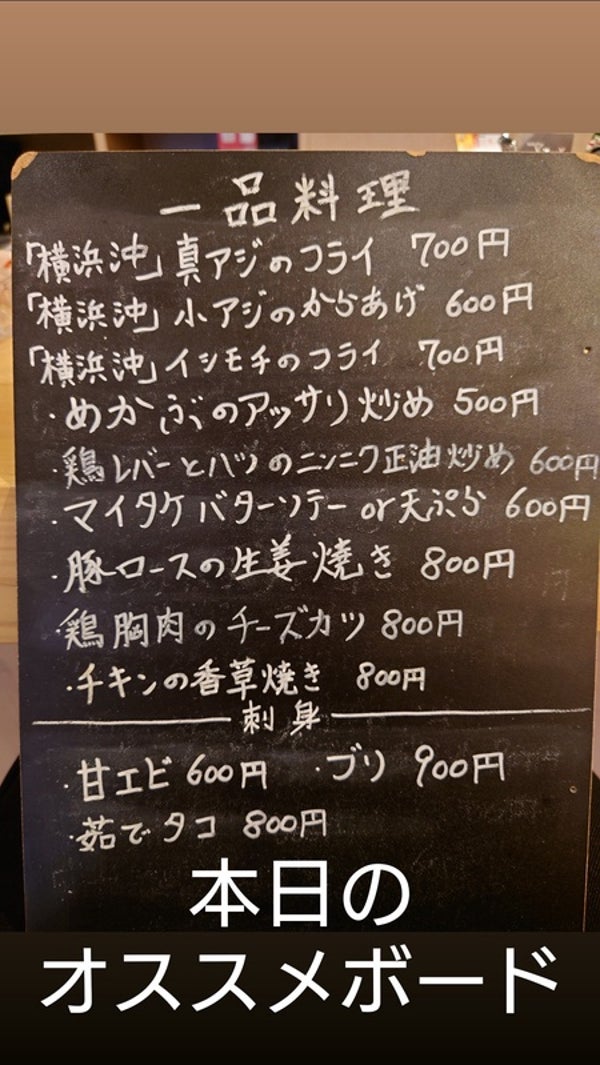 一品料理
「横浜沖」真アジのフライ 700円
「横浜沖」小アジのからあげ 600円
「横浜沖」イシモチのフライ 700円
・めかぶのアッサリ炒め 500円
・鶏レバーとハツのニンニク正油炒め 600円
・マイタケバターソテーor天ぷら 600円
・豚ロースの生姜焼き 800円
・鶏胸肉のチーズカツ 800円
・チキンの香草焼き 800円
刺身
・甘エビ 600円 ・ブリ 900円
・茹でタコ 800円
本日の
オススメボード